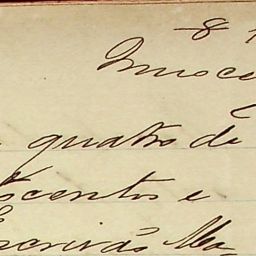 8
Innoce
quatro de
scentos e
Escrivão Ma